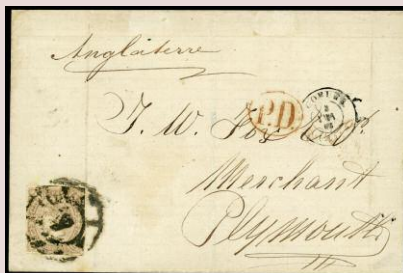 Angleterre
P.D.
J. W. Fox & Co.
Merchant
Plymouth